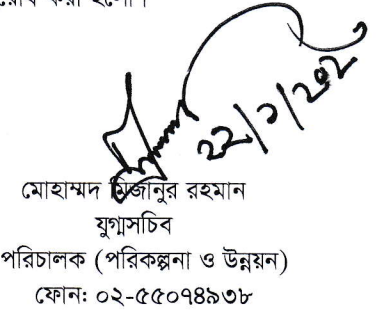 করা হলো।
মোহাম্মদ মিজানুর রহমান
যুগ্মসচিব
পরিচালক (পরিকল্পনা ও উন্নয়ন)
ফোন: ০২-৫৫০৭৪৯৩৮